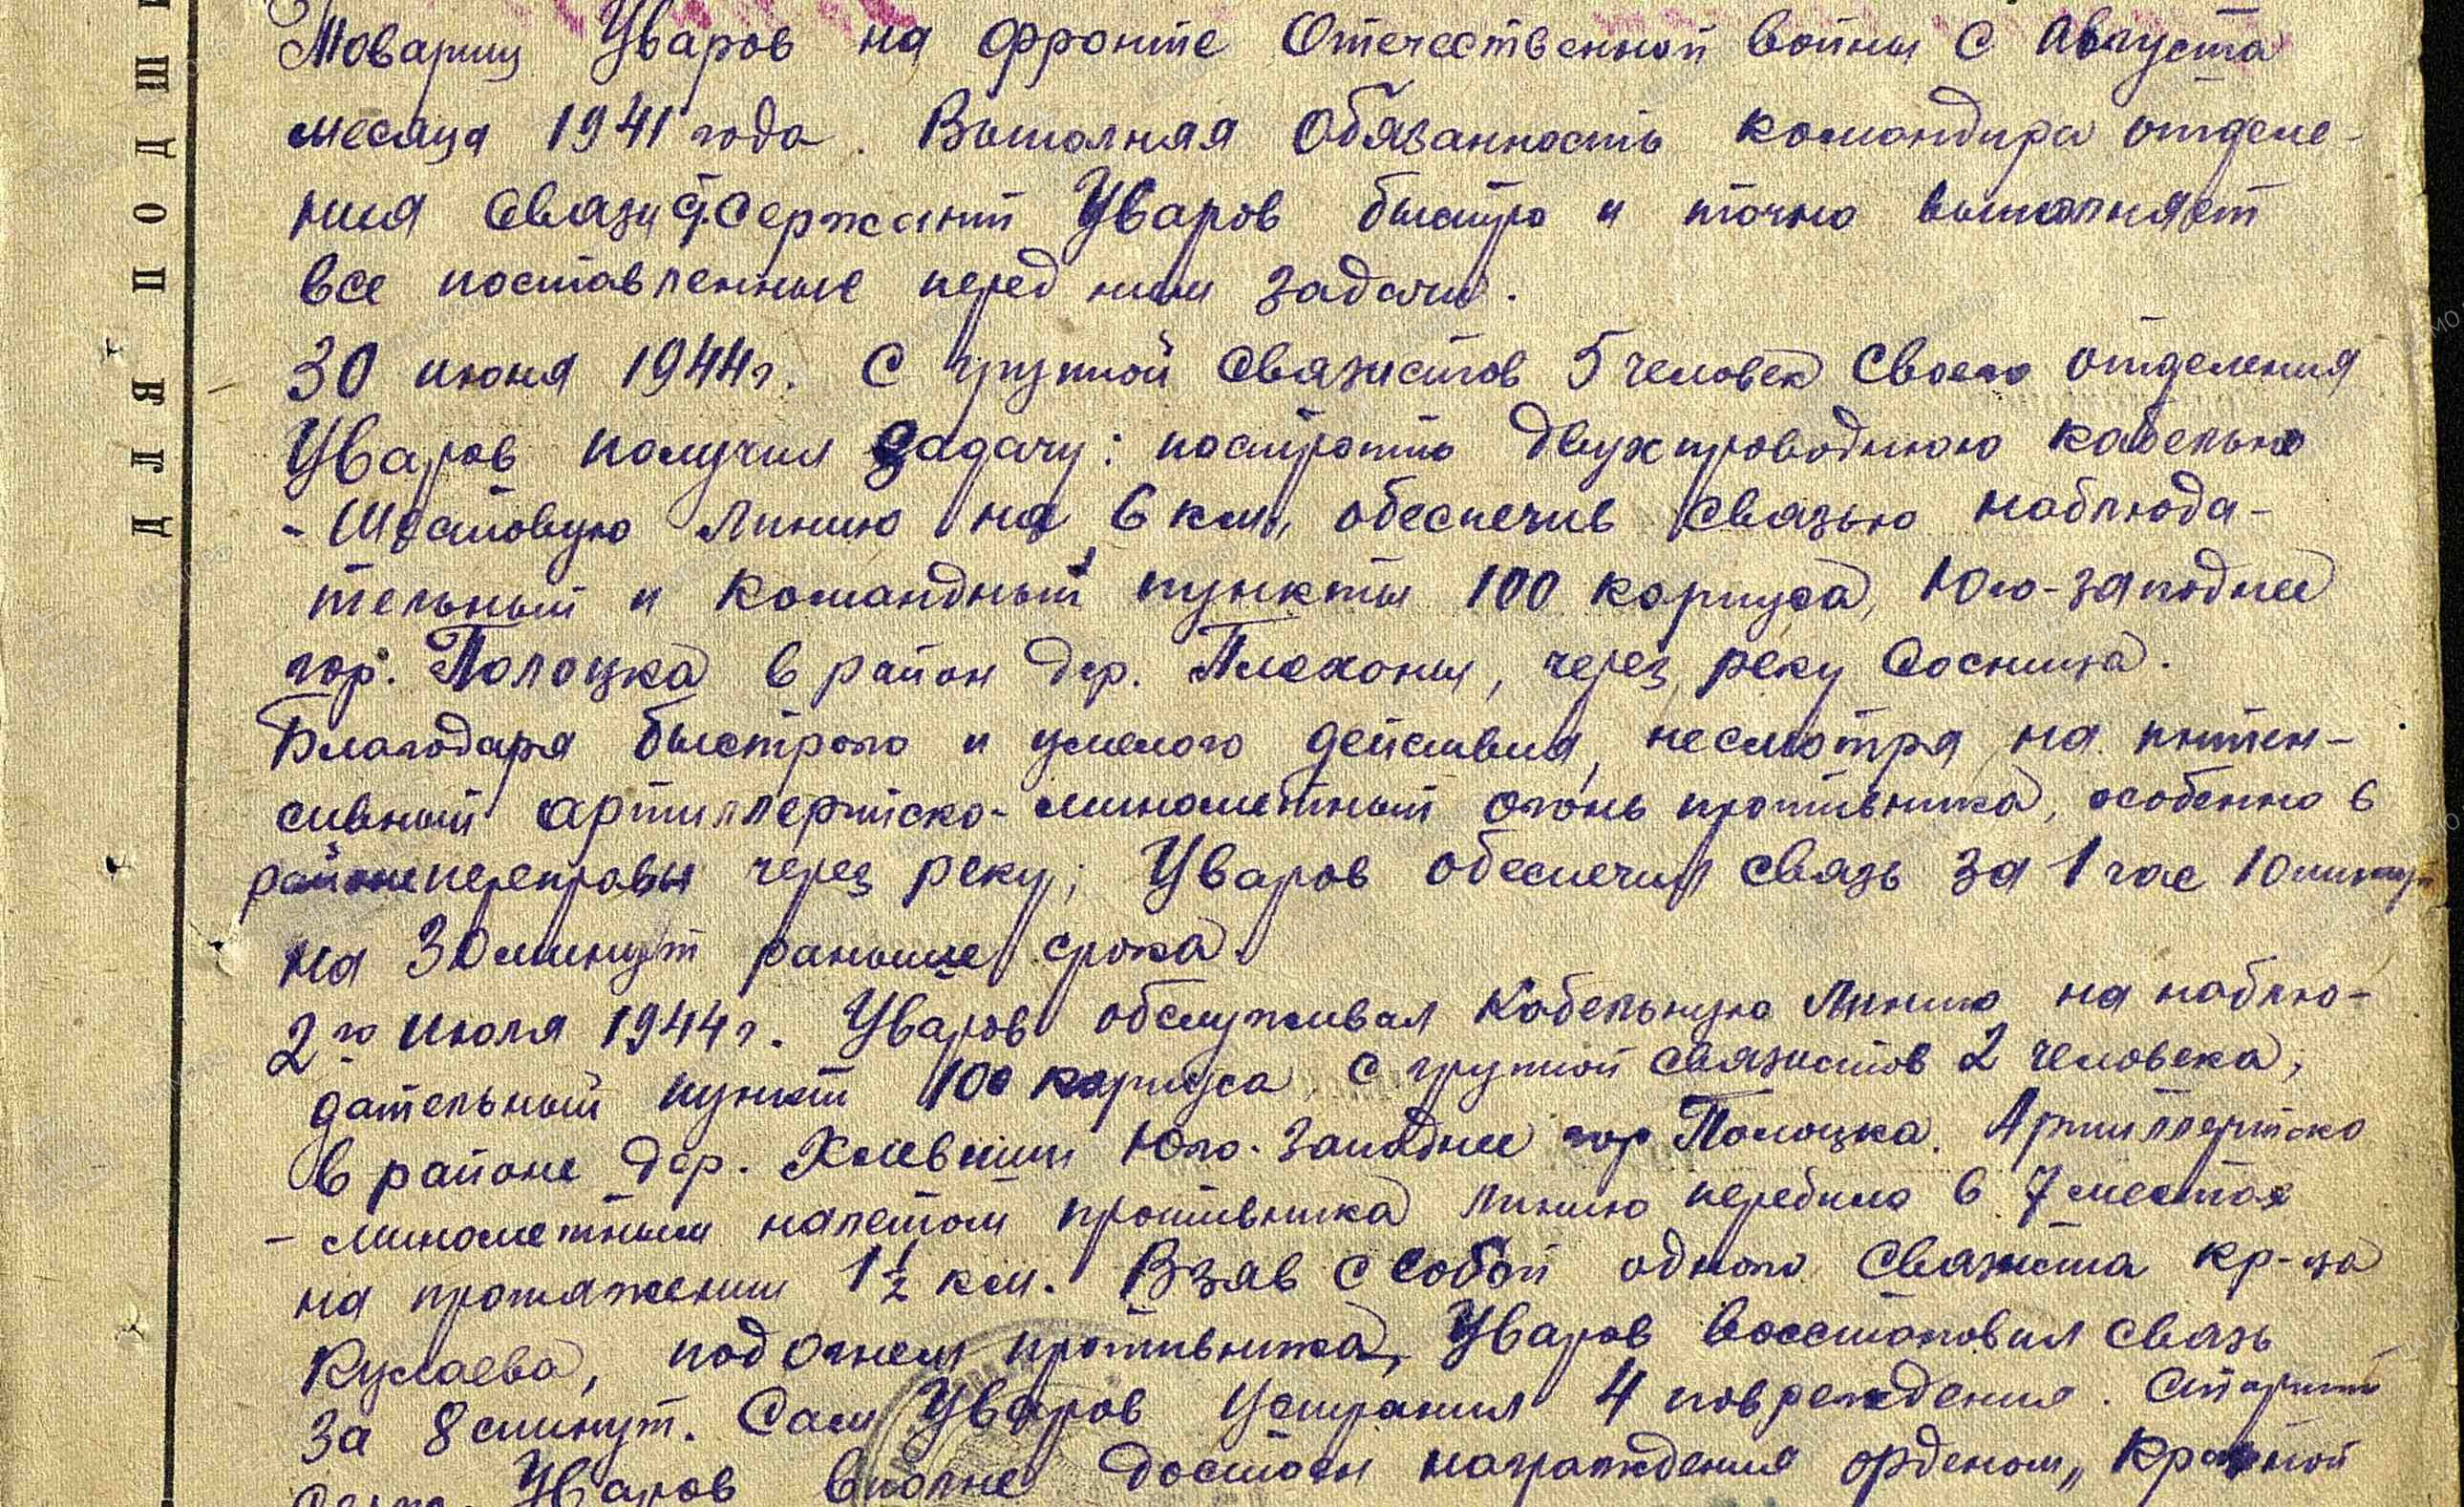 Товарищ Уваров на фронте Отечественной войны с Августа
месяца 1941 года. Выполняя обязанность командира отделе-
ния связи Ст. Сержант Уваров быстро и точно выполняет
все поставленные перед ним задачи.
30 июня 1944г. С группой связистов 5 человек своего отделения
Уваров получил задачу: построить двухпроводную кабельно
- Шестовую линию на 6 км, обеспечив связью наблюда-
тельный и командный пункты 100 корпуса, Юго-западнее
гор. Полоцка в район дер. Плехоны, через реку Сосница.
Благодаря быстрого и умелого действия, несмотря на интен-
сивный артиллерийско-минометный огонь противника, особенно в
районе переправы через реку; Уваров обеспечил связь за 1 час 10 минут
на 30 минут раньше срока.
2го Июля 1944г. Уваров обслуживал кабельную линию на наблю-
дательный пункт 100 корпуса, с группой связистов 2 человека,
в районе дер. Юго-западнее гор Полоцка. Артиллерийско
- минометным налетом противника линию перебило в 7 местах
на протяжении 1 1/2 км. Взяв с собой одного связиста кр-ца
Кулаева, под огнем противника, Уваров восстановил связь
за 8 минут. Сам Уваров устранил 4 повреждения. Старший
Серж. Уваров вполне достоин награждения орденом „Красной
ДЛЯ ПОДШИ